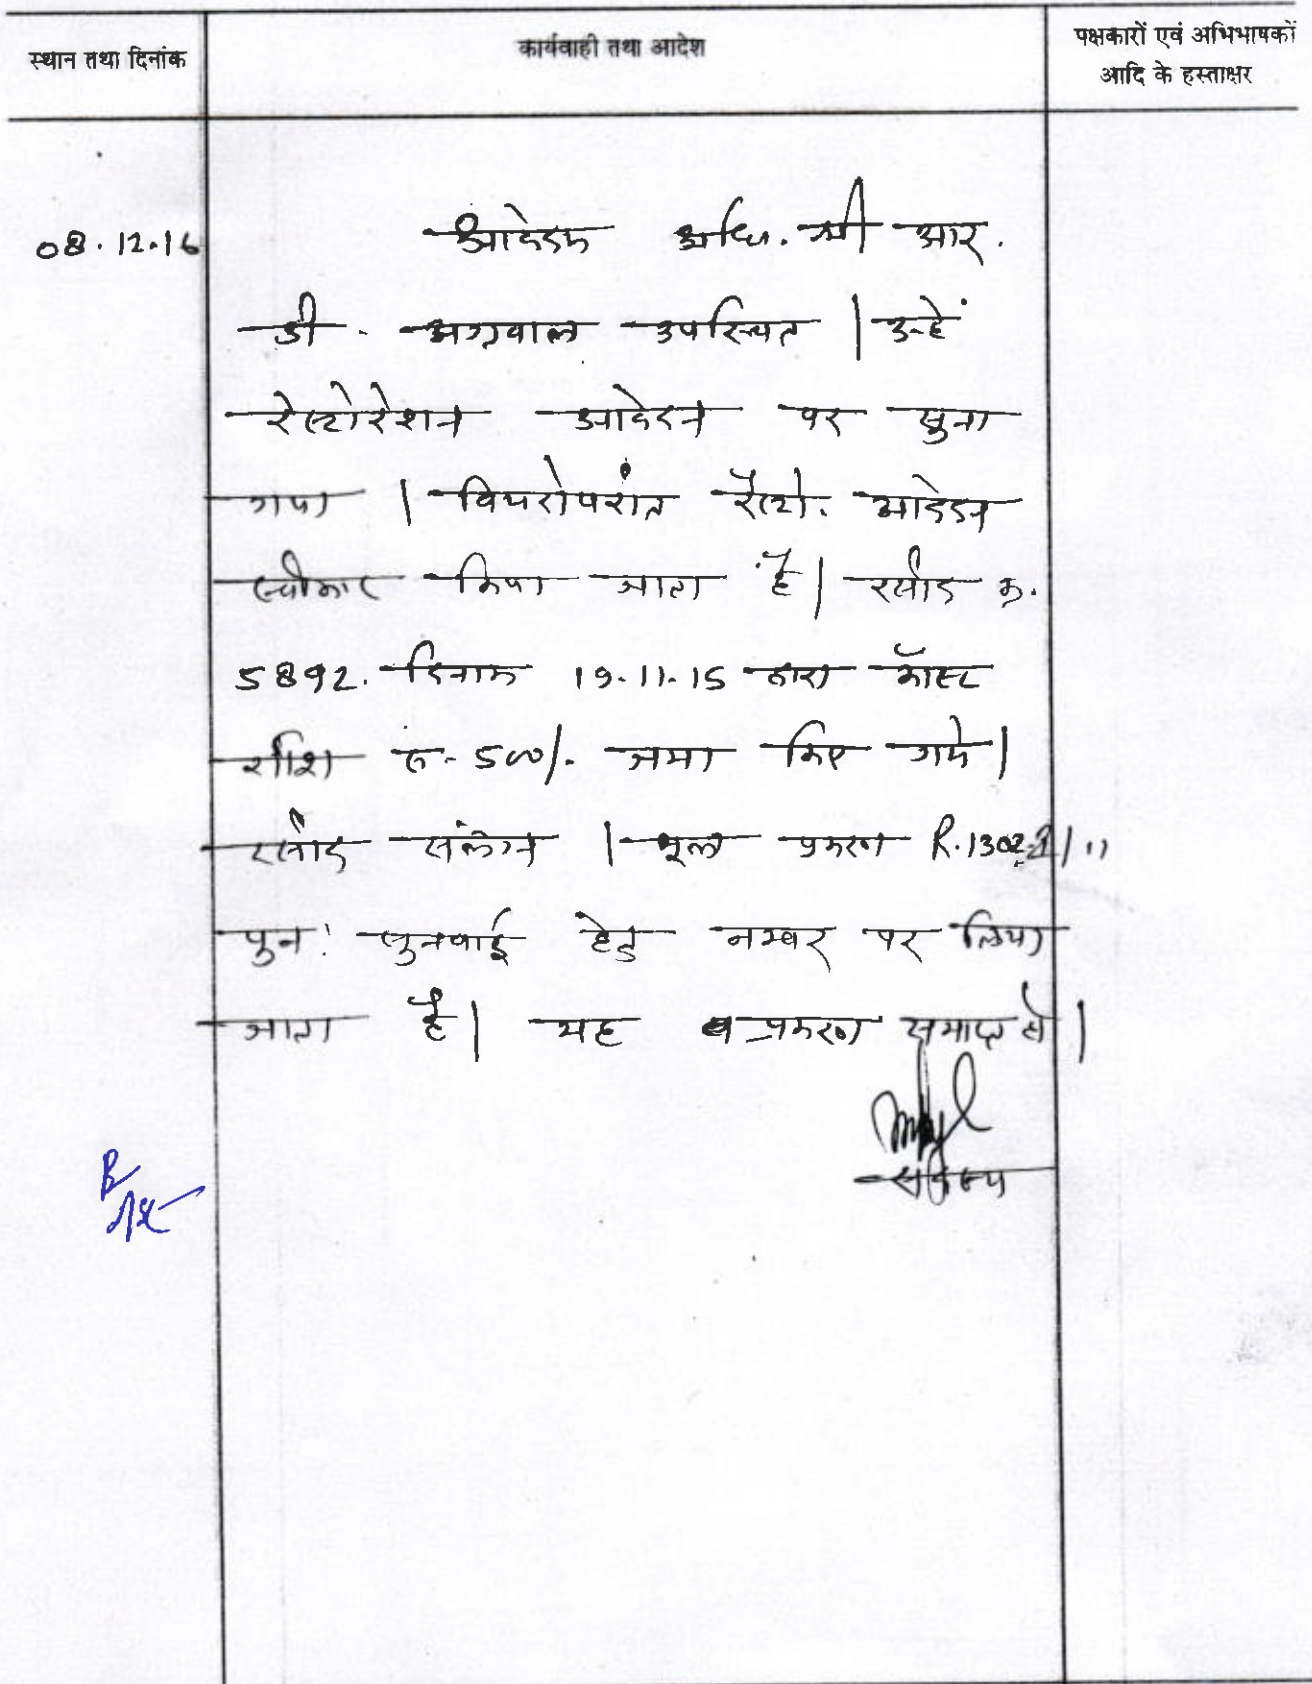 स्थान तथा दिनांक
कार्यवाही तथा आदेश
पक्षकारों एवं अभिभाषकों
आदि के हस्ताक्षर
08.12.16
आवेदक अधि. श्री आर.
डी. अग्रवाल उपस्थित | उन्हें
रेस्टोरेशन आवेदन पर सुना
गया | विचारोपरांत रेस्टो. आवेदन
स्वीकार किया जाता है | रसीद क्र.
5892. दिनांक 19.11.15 द्वारा कॉस्ट
राशि रु. 500/. जमा किए गये |
रसीद संलग्न | मूल प्रकरण
पुन: सुनवाई हेतु नम्बर पर लिया
जाता है | यह प्रकरण समाप्त हो |
सदस्य